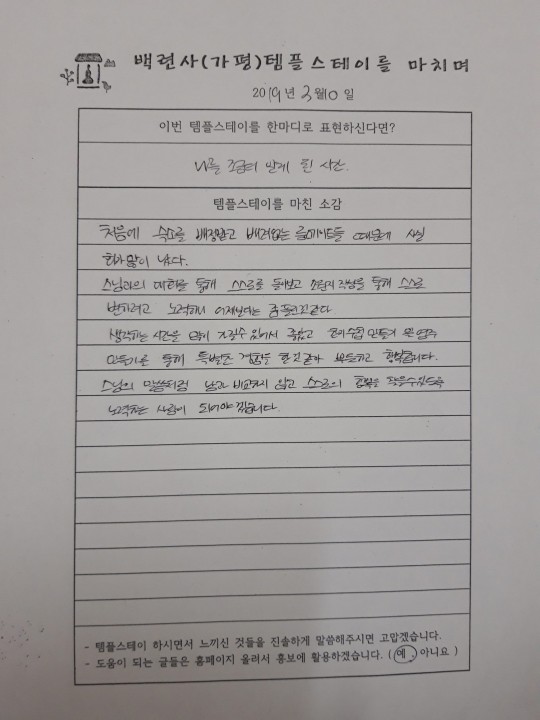 백련사(가평)템플스테이를 마치며
2019년 3월10일
이번 템플스테이를 한마디로 표현하신다면?
나를 조금더 알게 된 시간.
템플스테이를 마친 소감
처음에 숙소를 배정받고 배려없는 룸메이트들 때문에 사실
화가 많이 났다.
스님과의 대화를 통해 스스로를 돌아보고 소원지 작성을 통해 스스로
변하려고 노력하니 어제보다는 좀 풀린것같다
생각하는 시간을 많이 가질수 있어서 좋았고 만들기 및 염주
만들기를 통해 특별한 경험을 한것같아 뿌듯하고 행복합니다.
스님의 말씀처럼 남과 비교하지 않고 스스로의 행복을 찾을수있도록
노력하는 사람이 되어야 겠습니다
- 템플스테이 하시면서 느끼신 것들을 진솔하게 말씀해주시면 고맙겠습니다.
- 도움이 되는 글들은 홈페이지 올려서 홍보에 활용하겠습니다. ( 예, 아니요 )